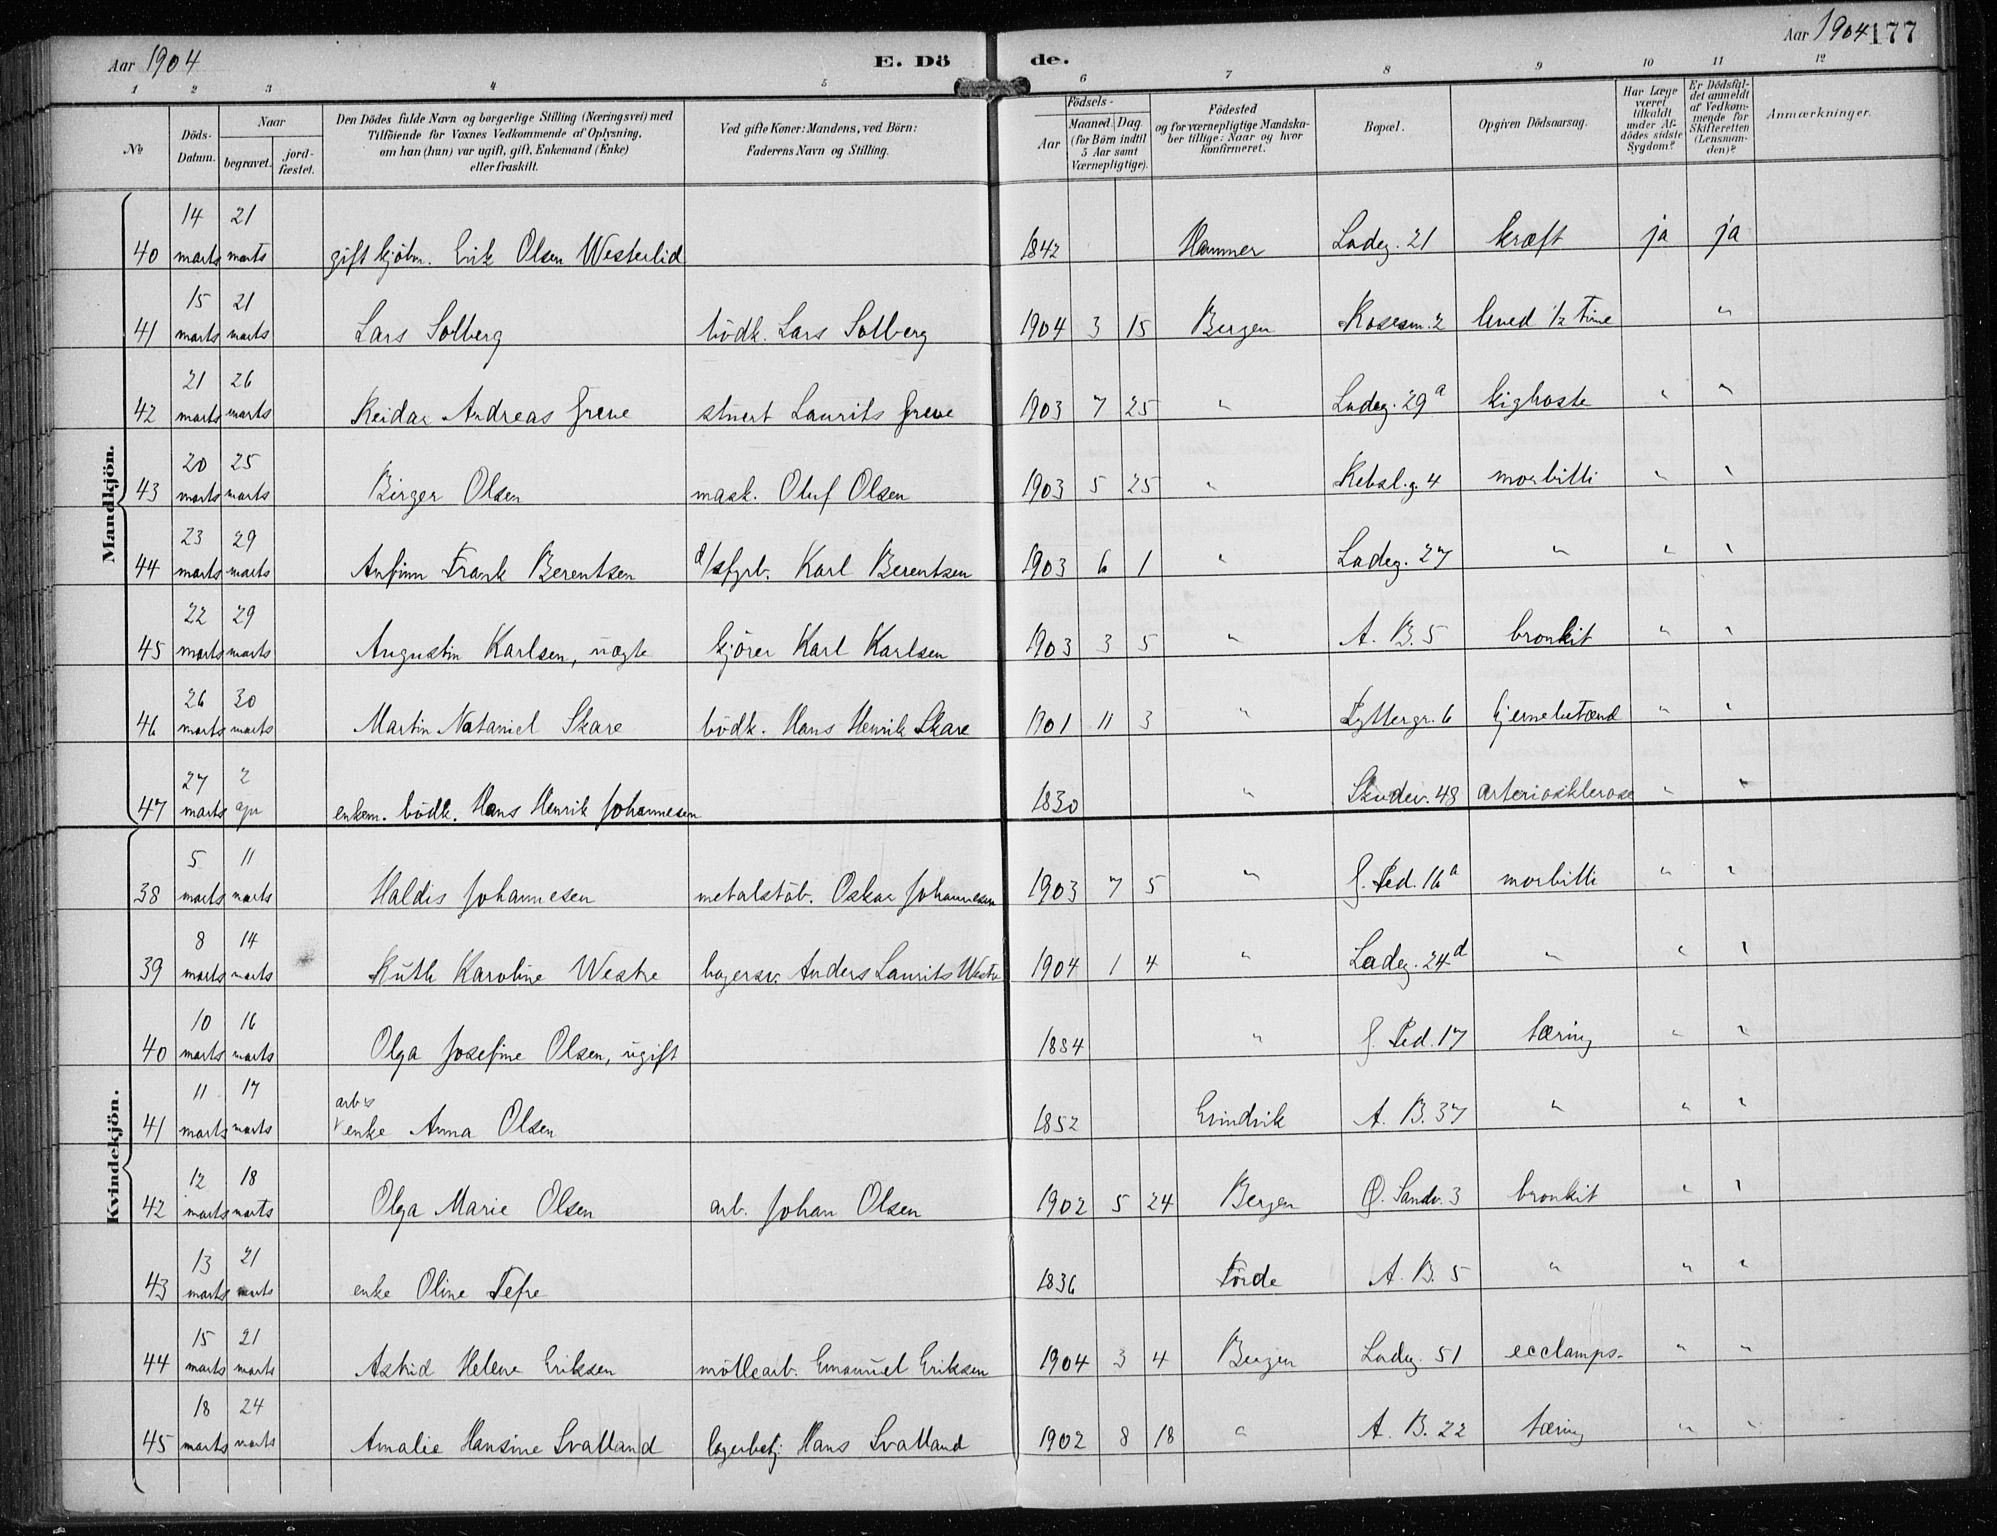 Aar 1904 E. Dö de. Aar 1904 177
1 2 3 4 5 6 7 8 9 10 11 12
No
Döds-Datum.
Naar
begravet.
jord-fæstet.
Den Dödes fulde Navn og borgerlige Stilling (Næringsvei) med
Tilföiende for Voxnes Vedkommende af Oplysning,
om han (hun) var ugift, gift, Enkemand (Enke)
eller fraskilt.
Ved gifte Koner: Mandens, ved Börn:
Faderens Navn og Stilling.
Födsels-
Aar
Maaned. Dag.
(for Börn indtil
5 Aar samt
Værnepligtige).
Födested
og for værnepligtige Mandska-
ber tillige: Naar og hvor
konfirmeret.
Bopæl.
Opgiven Dödsaarsag.
Har Læge
været
tilkaldt
under Af-
dödes sidste
Sygdom?
Er Dödsfal-
det anmeldt
af Vedkom-
mende for
Skifteretten
(Lensman-
den)?
Anmærkninger.
Mandkjön.
40 14 marts 21 marts gift kjöbm. Erik Olsen Westerlid 1842 Hammer Ladeg. 21 kræft ja ja
41 15 marts 21 marts Lars Solberg bödk. Lars Solberg 1904 3 15 Bergen Rosesm. 2 leved 1/2 Time "
42 21 marts 26 marts Reidar Andreas Greve stuert Laurits Greve 1903 7 25 " Ladeg. 29a kighoste " "
43 20 marts 25 marts Birger Olsen mask. Oluf Olsen 1903 5 25 " Rebsl.g. 4 morbilli " "
44 23 marts 29 marts Anfinn Frank Berentsen d/sfyrb. Karl Berentsen 1903 6 1 " Ladeg. 27 " " "
45 22 marts 29 marts Augustin Karlsen, uægte kjörer Karl Karlsen 1903 3 5 " A. B. 5 bronkit " "
46 26 marts 30 marts Martin Nataniel Skare bödk. Hans Henrik Skare 1901 11 3 " Lyttergr. 6 hjernebetænd " "
47 27 marts 2 apr enkem. bödk. Hans Henrik Johannesen 1830 " Skudev. 48 arteriosklerose " "
Kvindekjön.
38 5 marts 11 marts Haldis Johannesen metalstöb. Oskar Johannesen 1903 7 5 " G. Ped. 16a morbilli " "
39 8 marts 14 marts Ruth Karoline Westre bagersv. Anders Laurits Westre 1904 1 4 " Ladeg. 24d " " "
40 10 marts 16 marts Olga Josefine Olsen, ugift 1884 " G. Ped. 17 tæring " "
arb.s
41 11 marts 17 marts enke Anna Olsen 1852 Evindvik A. B. 37 " " "
42 12 marts 18 marts Olga Marie Olsen arb. Johan Olsen 1902 5 24 Bergen Ö. Sandv. 3 bronkit " "
43 13 marts 21 marts enke Oline Tefre 1836 Förde A. B. 5 " " "
44 15 marts 21 marts Astrid Helene Eriksen möllearb. Emanuel Eriksen 1904 3 4 Bergen Ladeg. 51 ecclamps. " "
45 18 marts 24 marts Amalie Hansine Svatland lagerbetj Hans Svatland 1902 8 18 " A. B. 22 tæring " "